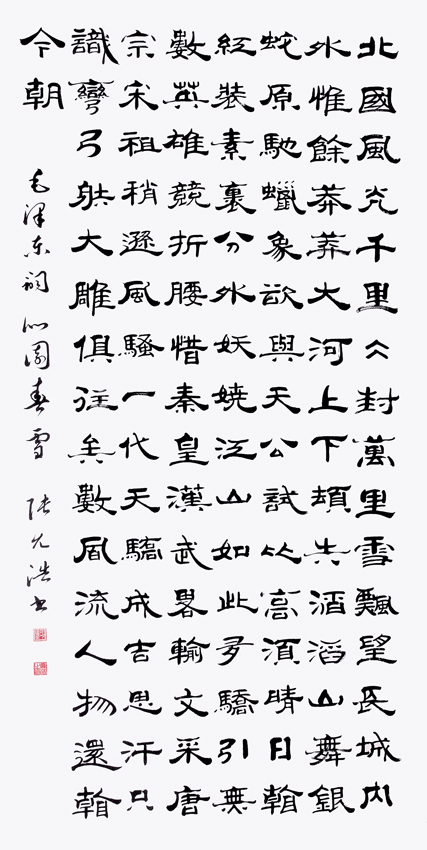 北國風光千里冰封萬里雪飄望長城內
外惟餘莽莽大河上下頓失滔滔山舞銀
蛇原馳蠟象欲與天公試比高須晴日看
紅裝素裹分外妖嬈江山如此多驕引無
數英雄競折腰惜秦皇漢武略輸文采唐
宗宋祖稍遜風騷一代天驕成吉思汗只
識彎弓射大雕俱往矣數風流人物還看
今朝
毛澤东詞沁園春雪 張允浩书